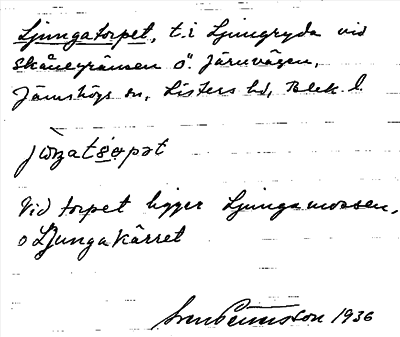 Ljungatorpet, t. i Ljungryda vid
Skånegränsen Ö. järnvägen,
Jämshögs sn, Listers hd, Blek. l.
Vid torpet ligger Ljungamossen,
o Ljungakärret
1936